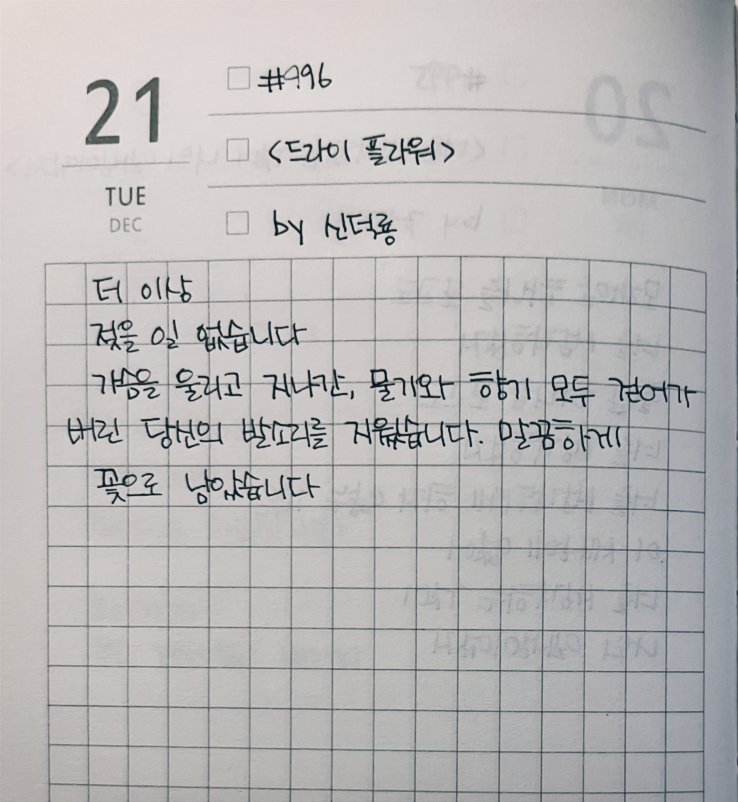 21
TUE
DEC
#996
<드라이 플라워>
by 신덕룡
더 이상
젖을 일 없습니다
가슴을 울리고 지나간, 물기와 향기 모두 걷어가
버린 당신의 발소리를 지웠습니다. 말끔하게
꽃으로 남았습니다